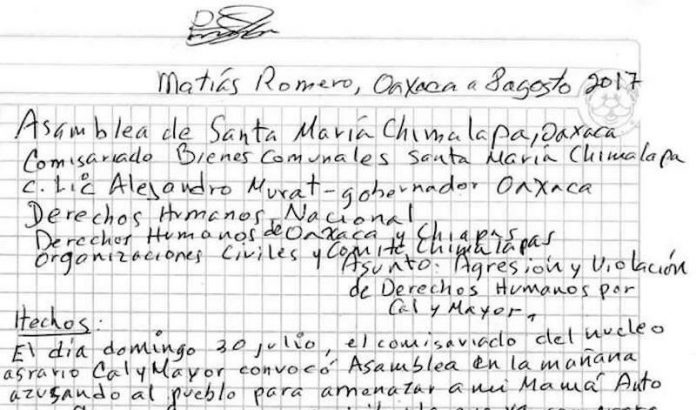 Matías Romero, Oaxaca a 8 agosto 2017
Asamblea de Santa María Chimalapa, Oaxaca
Comisariado Bienes Comunales Santa María Chimalapa
C. Lic Alejandro Murat - gobernador Oaxaca
Derechos Humanos Nacional
Derechos Humanos de Oaxaca y Chiapas
Organizaciones Civiles y Comité Chimalapas
Asunto: Agresión y Violación
de Derechos Humanos por
Cal y Mayor,
Hechos:
El día domingo 30 julio, el comisariado del nucleo
agrario Cal y Mayor convocó Asamblea en la mañana
azuzando al pueblo para amenazar a mi Mamá Auto